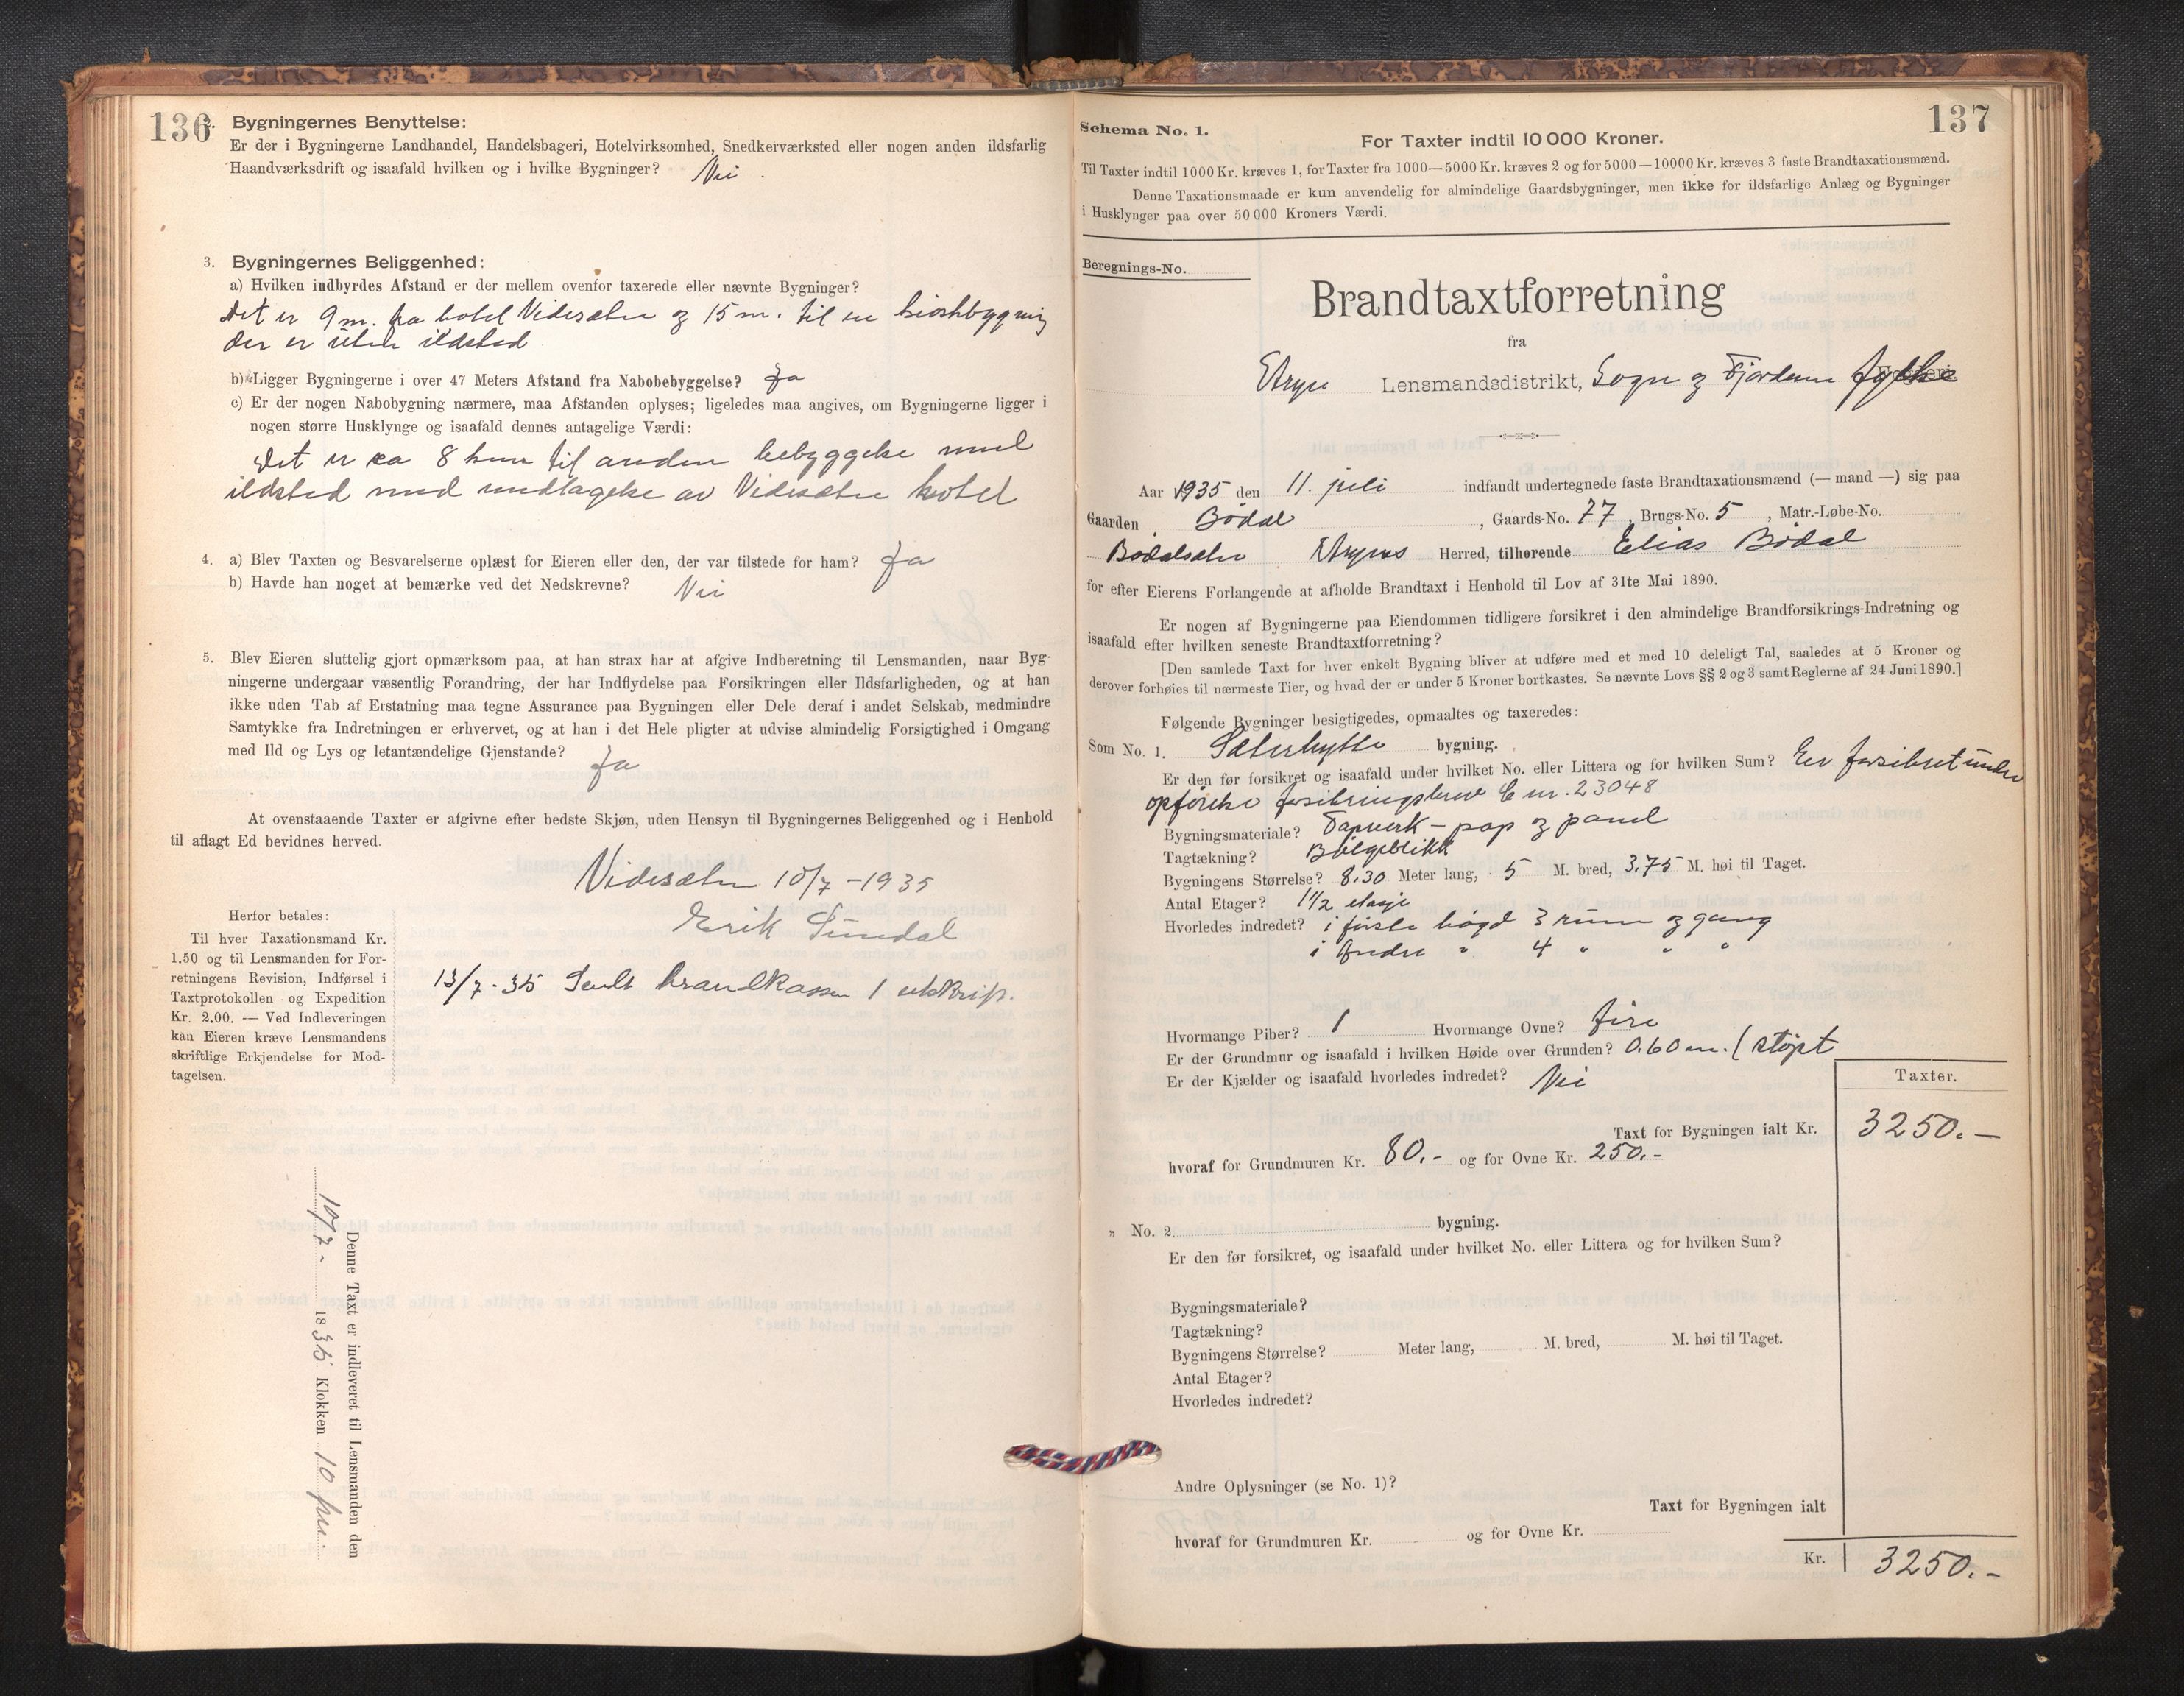 136
2. Bygningernes Benyttelse:
Er der i Bygningerne Landhandel, Handelsbageri, Hotelvirksomhed, Snedkerværksted eller nogen anden ildsfarlig
Haandværksdrift og isaafald hvilken og i hvilke Bygninger? Nei.
3. Bygningernes Beliggenhed:
a) Hvilken indbyrdes Afstand er der mellem ovenfor taxerede eller nævnte Bygninger?
Det er 9 m. fra hotel Videsæter og 15 m. til en kioskbygning
der er uten ildsted
b) Ligger Bygningerne i over 47 Meters Afstand fra Nabobebyggelse? Ja
c) Er der nogen Nabobygning nærmere, maa Afstanden oplyses; ligeledes maa angives, om Bygningerne ligger i
nogen større Husklynge og isaafald dennes antagelige Værdi:
Det er ca 8 km til anden bebyggelse med
ildsted med undtagelse av Videsæter hotel
4. a) Blev Taxten og Besvarelserne oplæst for Eieren eller den, der var tilstede for ham? Ja
b) Havde han noget at bemærke ved det Nedskrevne? Nei
5. Blev Eieren sluttelig gjort opmærksom paa, at han strax har at afgive Indberetning til Lensmanden, naar Byg-
ningerne undergaar væsentlig Forandring, der har Indflydelse paa Forsikringen eller Ildsfarligheden, og at han
ikke uden Tab af Erstatning maa tegne Assurance paa Bygningen eller Dele deraf i andet Selskab, medmindre
Samtykke fra Indretningen er erhvervet, og at han i det Hele pligter at udvise almindelig Forsigtighed i Omgang
med Ild og Lys og letantændelige Gjenstande? Ja
At ovenstaaende Taxter er afgivne efter bedste Skjøn, uden Hensyn til Bygningernes Beliggenhed og i Henhold
til aflagt Ed bevidnes herved.
Videsæter 10/7 - 1935
Erik Sundal
Herfor betales:
Til hver Taxationsmand Kr.
1.50 og til Lensmanden for For-
retningens Revision, Indførsel i
Taxtprotokollen og Expedition
Kr. 2.00. — Ved Indleveringen
kan Eieren kræve Lensmandens
skriftlige Erkjendelse for Mod-
tagelsen.
13/7-35 Sendt brandkassen 1 utskrift.
Denne Taxt er indleveret til Lensmanden den
10/7- 1835 Klokken 10 fm.
137
Schema No. 1.
For Taxter indtil 10 000 Kroner.
Til Taxter indtil 1000 Kr. kræves 1, for Taxter fra 1000—5000 Kr. kræves 2 og for 5000—10000 Kr. kræves 3 faste Brandtaxationsmænd.
Denne Taxationsmaade er kun anvendelig for almindelige Gaardsbygninger, men ikke for ildsfarlige Anlæg og Bygninger
i Husklynger paa over 50 000 Kroners Værdi.
Beregnings-No.
Brandtaxtforretning
fra
Stryn Lensmandsdistrikt, Sogn og Fjordane fylke
Aar 1935 den 11. juli indfandt undertegnede faste Brandtaxationsmænd (— mand —) sig paa
Gaarden Bødal, Gaards-No. 77, Brugs-No. 5, Matr.-Løbe-No.
Bødalsæter Stryns Herred, tilhørende Elias Bødal
for efter Eierens Forlangende at afholde Brandtaxt i Henhold til Lov af 31te Mai 1890.
Er nogen af Bygningerne paa Eiendommen tidligere forsikret i den almindelige Brandforsikrings-Indretning og
isaafald efter hvilken seneste Brandtaxtforretning?
[Den samlede Taxt for hver enkelt Bygning bliver at udføre med et med 10 deleligt Tal, saaledes at 5 Kroner og
derover forhøies til nærmeste Tier, og hvad der er under 5 Kroner bortkastes. Se nævnte Lovs §§ 2 og 3 samt Reglerne af 24 Juni 1890.]
Følgende Bygninger besigtigedes, opmaaltes og taxeredes:
Som No. 1. Sæterhytte bygning.
Er den før forsikret og isaafald under hvilket No. eller Littera og for hvilken Sum? Er forsikret under
opførelse forsikringsbrev C nr. 23048
Bygningsmateriale? Tapverk - pap og panel
Tagtækning? Bølgeblikk
Bygningens Størrelse? 8.30 Meter lang, 5 M. bred, 3.75 M. høi til Taget.
Antal Etager? 1 1/2 etasje
Hvorledes indredet? i første høgd 3 rum og gang
i andre " 4 " " "
Hvormange Piber? 1 Hvormange Ovne? fire
Er der Grundmur og isaafald i hvilken Høide over Grunden? 0.60 m. / støpt
Er der Kjælder og isaafald hvorledes indredet? Nei
Taxter.
Taxt for Bygningen ialt Kr. 3250.—
hvoraf for Grundmuren Kr. 80.- og for Ovne Kr. 250.-
„ No. 2 bygning.
Er den før forsikret, og isaafald under hvilket No. eller Littera og for hvilken Sum?
Bygningsmateriale?
Tagtækning?
Bygningens Størrelse? Meter lang, M. bred, M. høi til Taget.
Antal Etager?
Hvorledes indredet?
Andre Oplysninger (se No. 1)?
Taxt for Bygningen ialt
hvoraf for Grundmuren Kr. og for Ovne Kr.
Kr. 3250.-